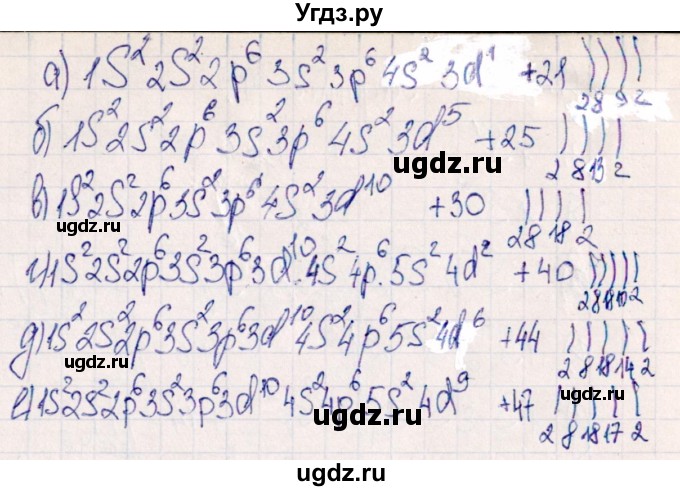 Угдз.ру
а) 1S² 2S² 2p⁶ 3s² 3p⁶ 4s² 3d¹ +21 ) ) ) )
2 8 9 2
б) 1S² 2s² 2p⁶ 3s² 3p⁶ 4s² 3d⁵ +25 ) ) ) )
2 8 13 2
ugdz.ru
в) 1S² 2S² 2p⁶ 3s² 3p⁶ 4s² 3d¹⁰ +30 ) ) ) )
2 8 18 2
ugdz.ru ugdz.ru
г) 1s² 2s² 2p⁶ 3s² 3p⁶ 3d¹⁰ 4s² 4p⁶ 5s² 4d² +40 ) ) ) ) )
2 8 18 10 2
ugdz.ru
д) 1s² 2s² 2p⁶ 3s² 3p⁶ 3d¹⁰ 4s² 4p⁶ 5s² 4d⁶ +44 ) ) ) ) )
2 8 18 14 2
ugdz.ru
е) 1s² 2s² 2p⁶ 3s² 3p⁶ 3d¹⁰ 4s² 4p⁶ 5s² 4d⁹ +47 ) ) ) ) )
2 8 18 17 2
ugdz.ru
ugdz.ru